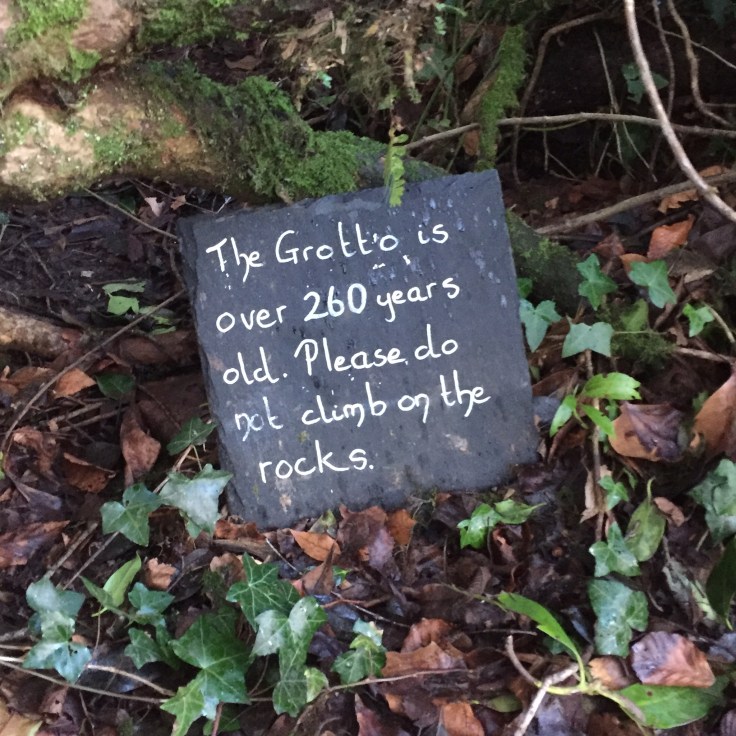 The Grotto is
over 260 years
old. Please do
not climb on the
rocks.